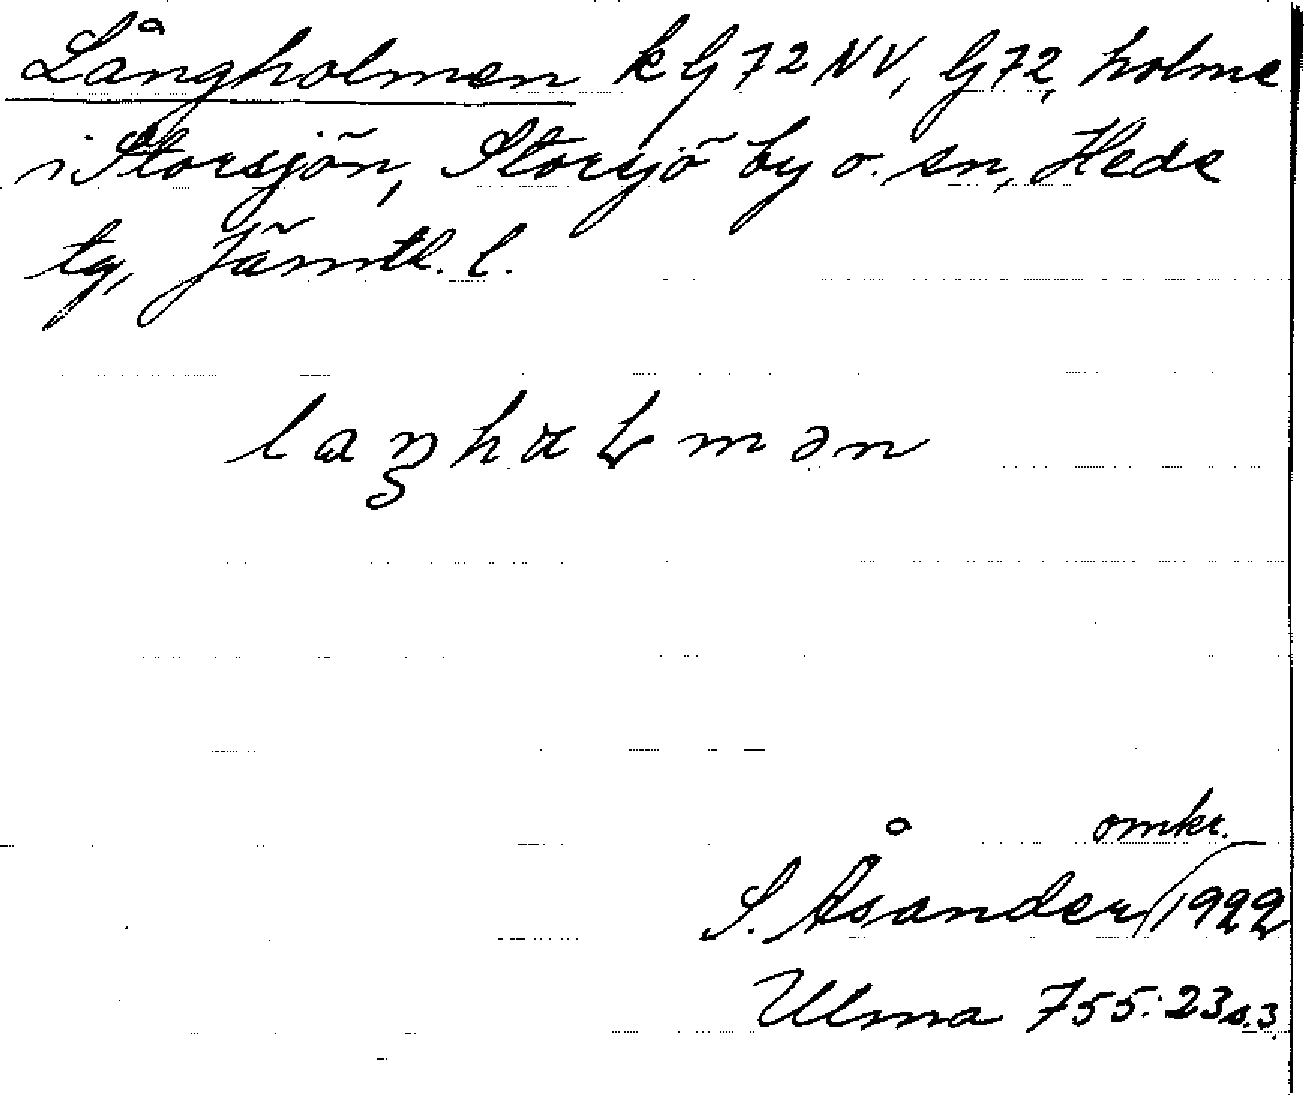 Långholmen k G 72 NV, G 72, holme
i Storsjön, Storsjö by o. sn, Hede
tg, Jämtl. l.
laŋhαɽmən
omkr.
S. Åsander/1922
Ulma 755:23 s. 3.